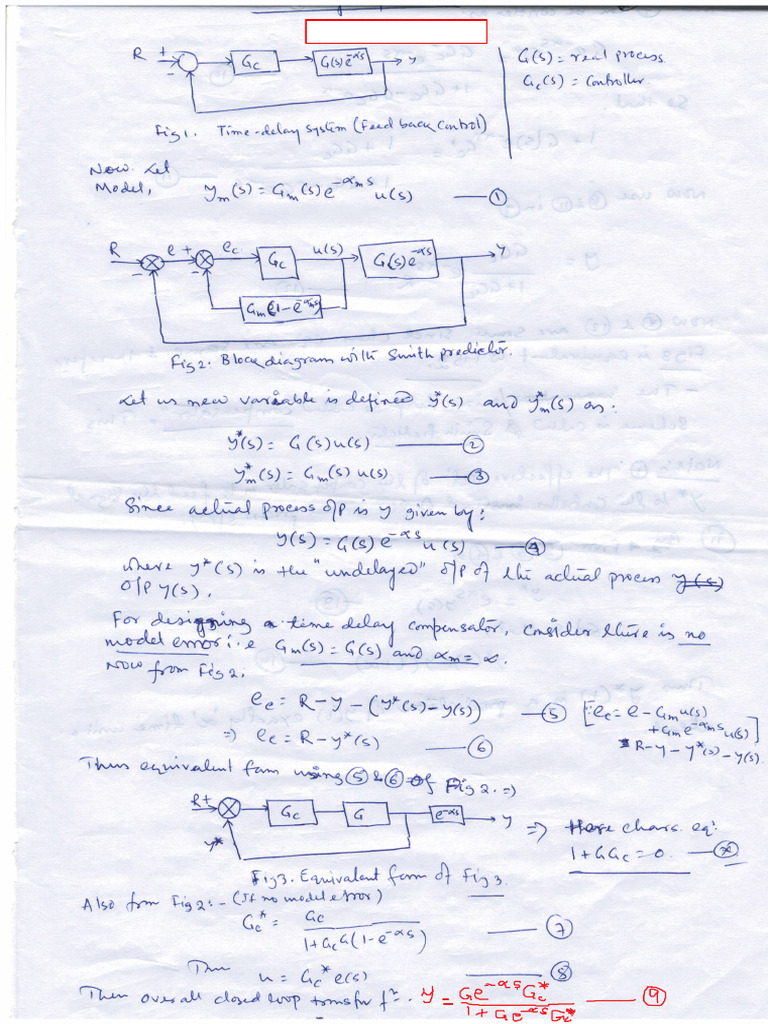 R + - Gc G(s)e^{-αs} y
G(s) = real process
Gc(s) = Controller
Fig 1. Time-delay system (Feed back control)
Now Let
Model, y_m(s) = G_m(s) e^{-α_m s} u(s) —— ①
R - e + - e_c Gc u(s) G(s)e^{-αs} y
G_m(1-e^{-α_m s})
Fig 2. Block diagram with Smith predictor.
Let us new variable is defined y*(s) and y*_m(s) as:
y*(s) = G(s) u(s) —— ②
y*_m(s) = G_m(s) u(s) —— ③
Since actual process o/p is y given by:
y(s) = G(s) e^{-αs} u(s) —— ④
where y*(s) is the "undelayed" o/p of the actual process y(s)
o/p y(s).
For designing a time delay compensator, consider there is no
model error i.e G_m(s) = G(s) and α_m = α.
Now from Fig 2.
e_c = R - y - (y*(s) - y(s)) —— ⑤ [∵ e_c = e - G_m u(s)
+ G_m e^{-α_m s} u(s)]
⇒ e_c = R - y*(s) —— ⑥
R - y - y*(s) - y(s).
Thus equivalent form using ⑤ & ⑥ of Fig 2. ⇒
R + y* Gc G e^{-αs} y ⇒ Here chars. eq:
1 + GGc = 0. —— ⊛
Fig 3. Equivalent form of Fig 3.
Also from Fig 2:- (If no model error)
Gc* = Gc / (1 + Gc G(1 - e^{-αs})) —— ⑦
Thus u = Gc* e(s) —— ⑧
Then overall closed loop transfer fⁿ. y = Ge^{-αs}Gc* / (1 + Ge^{-αs}Gc*) —— ⑨